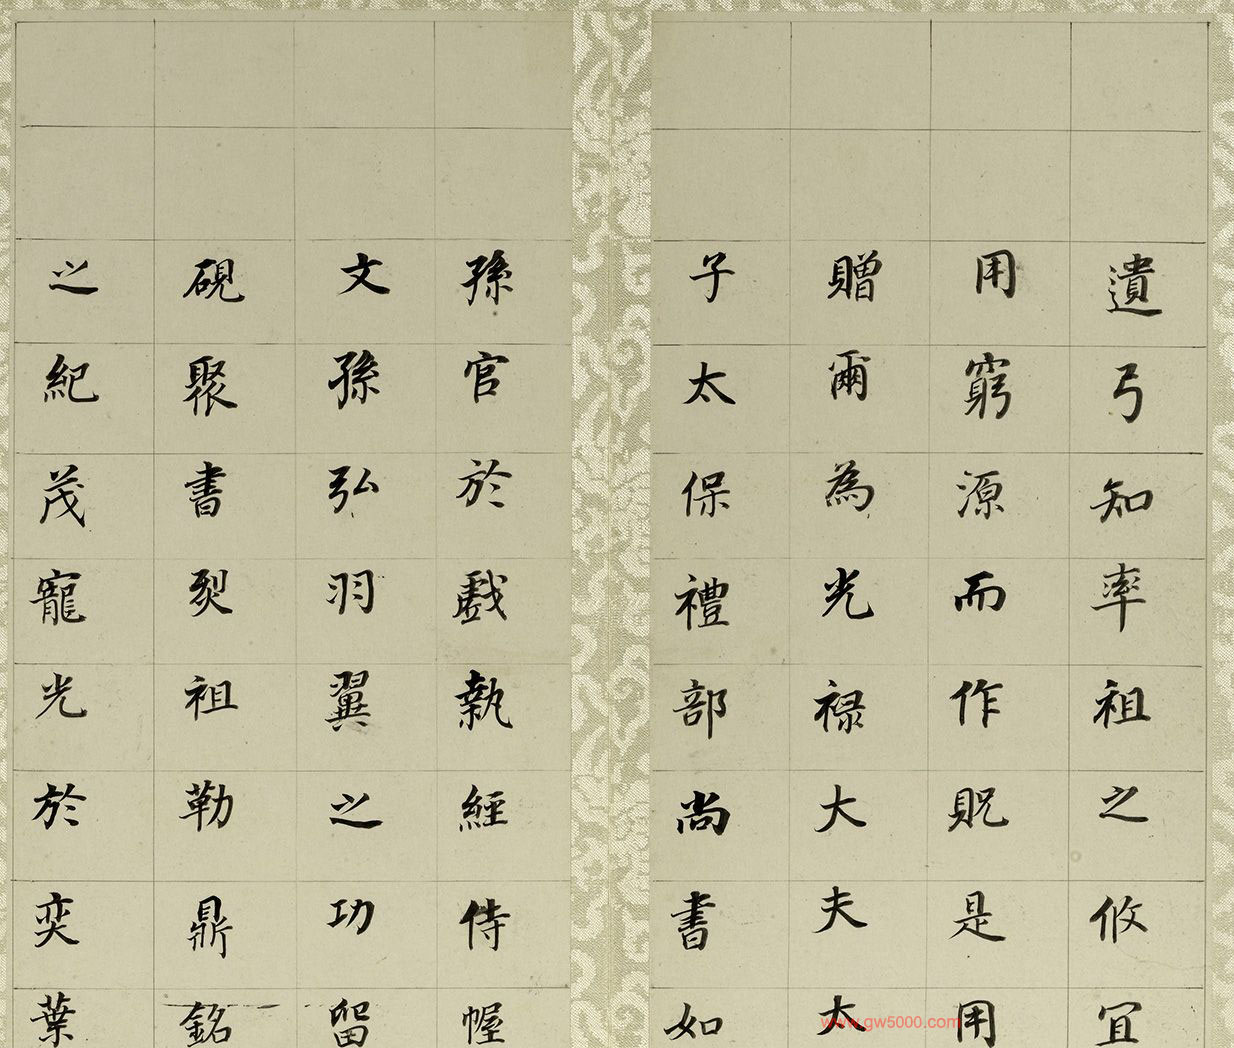 遺弓知率祖之攸宜
用窮源而作貺是用
贈爾為光禄大夫大
子太保禮部尚書如
孫官於戲執經侍幄
文孫弘羽翼之功留
硯聚書烈祖勒鼎銘
之紀茂寵光於奕葉
www.gw5000.com